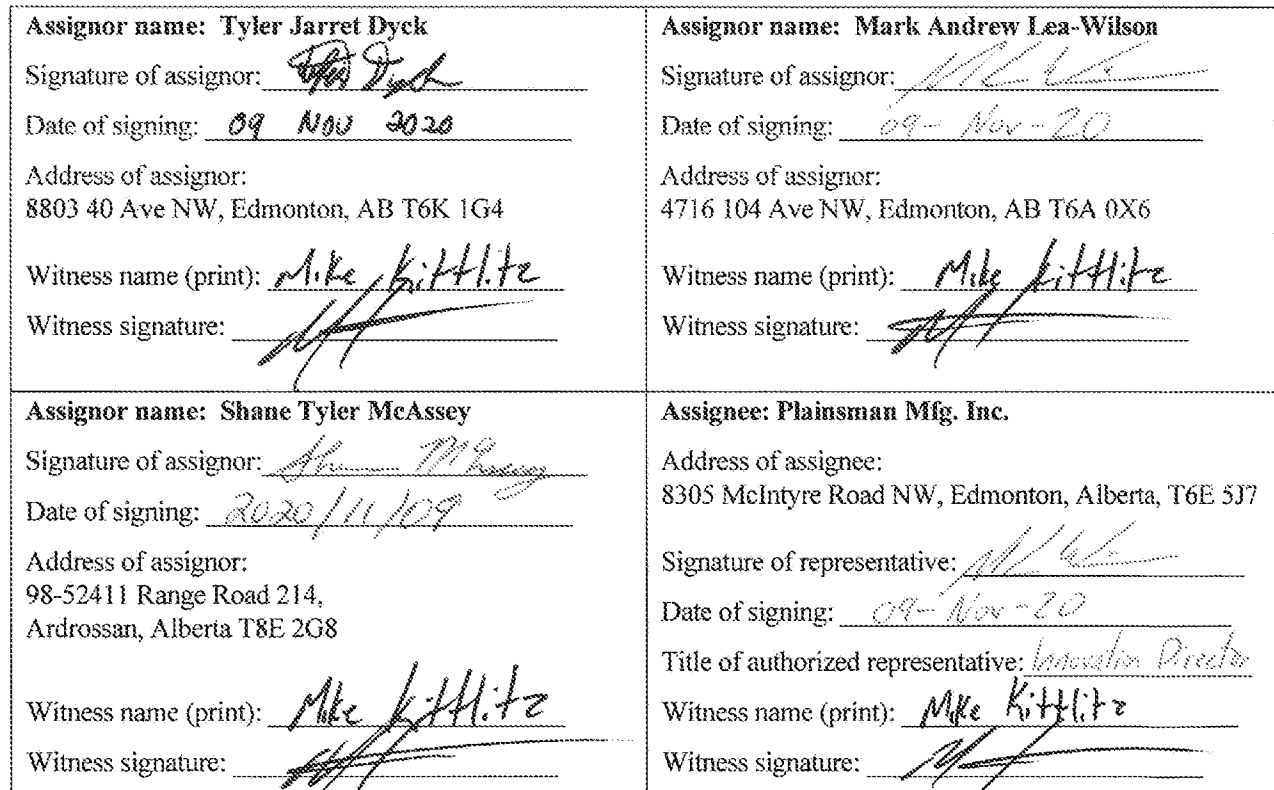 Assignor name: Tyler Jarret Dyck
Signature of assignor:
Date of signing: 09 NOV 2020
Address of assignor:
8803 40 Ave NW, Edmonton, AB T6K 1G4
Witness name (print): Mike Kittlitz
Witness signature:
Assignor name: Mark Andrew Lea-Wilson
Signature of assignor:
Date of signing: 09-Nov-20
Address of assignor:
4716 104 Ave NW, Edmonton, AB T6A 0X6
Witness name (print): Mike Kittlitz
Witness signature:
Assignor name: Shane Tyler McAssey
Signature of assignor:
Date of signing: 2020/11/09
Address of assignor:
98-52411 Range Road 214,
Ardrossan, Alberta T8E 2G8
Witness name (print): Mike Kittlitz
Witness signature:
Assignee: Plainsman Mfg. Inc.
Address of assignee:
8305 McIntyre Road NW, Edmonton, Alberta, T6E 5J7
Signature of representative:
Date of signing: 09-Nov-20
Title of authorized representative: Innovation Director
Witness name (print): Mike Kittlitz
Witness signature: